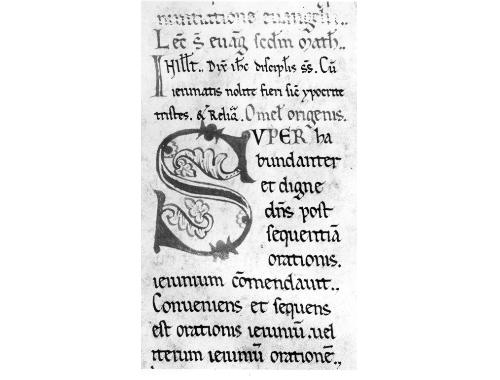 nuntiatione euangelii..
Lec̄ s̄ euāg scdm̄ Math..
IN ILLT̄.. Dix̄ ih̄c discipl̄is s̄s. Cū
ieiunatis nolite fieri sic̄ ypocrite
tristes. & Reliq̄. Omel̄ origenis.
SVPER ha
bundanter
et digne
dn̄s post
sequentiā
orationis.
ieiunium cōmendauit..
Conueniens et sequens
est orationis ieiuniū. uel
iterum ieiuniū orationē.,